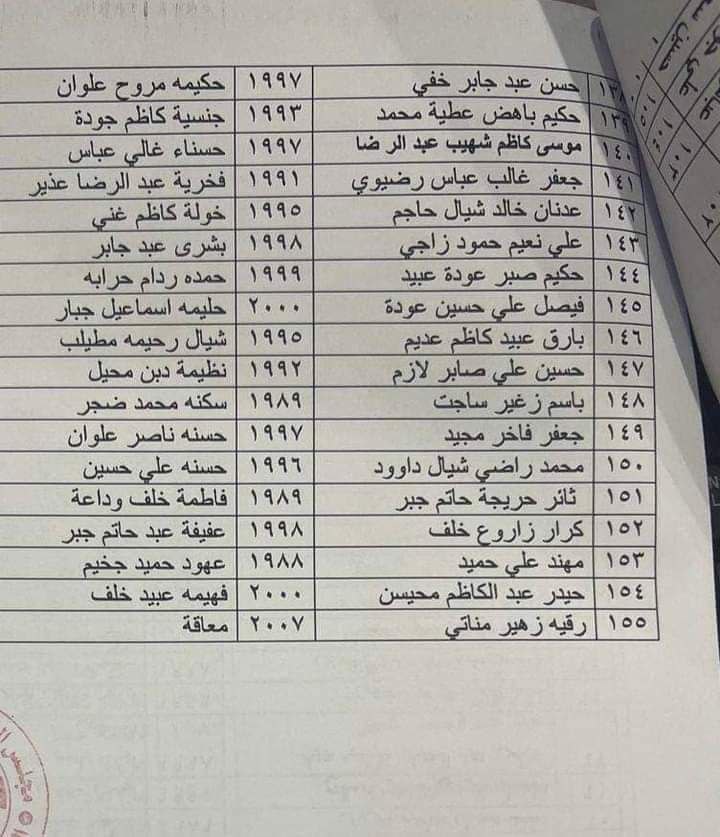 ١٣٨ حسن عبد جابر خفي ١٩٩٧ حكيمه مروح علوان
١٣٩ حكيم باهض عطية محمد ١٩٩٣ جنسية كاظم جودة
١٤٠ موسى كاظم شهيب عبد الر ضا ١٩٩٧ حسناء غالي عباس
١٤١ جعفر غالب عباس رضيوي ١٩٩١ فخرية عبد الرضا عذير
١٤٢ عدنان خالد شيال حاجم ١٩٩٥ خولة كاظم غني
١٤٣ علي نعيم حمود زاجي ١٩٩٨ بشرى عبد جابر
١٤٤ حكيم صبر عودة عبيد ١٩٩٩ حمده ردام حرابه
١٤٥ فيصل علي حسين عودة ٢٠٠٠ حليمه اسماعيل جبار
١٤٦ بارق عبيد كاظم عديم ١٩٩٥ شيال رحيمه مطيلب
١٤٧ حسين علي صابر لازم ١٩٩٢ نظيمة دبن محيل
١٤٨ باسم زغير ساجت ١٩٨٩ سكنه محمد ضجر
١٤٩ جعفر فاخر مجيد ١٩٩٧ حسنه ناصر علوان
١٥٠ محمد راضي شيال داوود ١٩٩٦ حسنه علي حسين
١٥١ ثائر حريجة حاتم جبر ١٩٨٩ فاطمة خلف وداعة
١٥٢ كرار زاروع خلف ١٩٩٨ عفيفة عبد حاتم جبر
١٥٣ مهند علي حميد ١٩٨٨ عهود حميد جخيم
١٥٤ حيدر عبد الكاظم محيسن ٢٠٠٠ فهيمه عبيد خلف
١٥٥ رقيه زهير مناتي ٢٠٠٧ معاقة